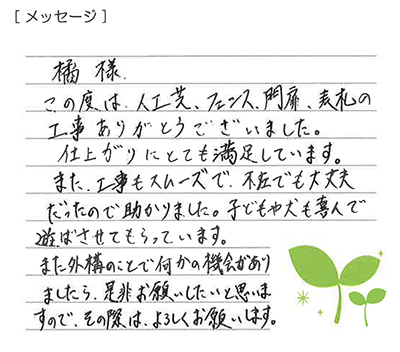 [ メッセージ ]
橘 様.
この度は、人工芝、フェンス、門扉、表札の
工事ありがとうございました。
仕上がりにとても満足しています。
また、工事もスムーズで、不在でも大丈夫
だったので助かりました。子どもや犬も喜んで
遊ばさせてもらっています。
また外構のことで何かの機会があり
ましたら、是非お願いしたいと思いま
すので、その際は、よろしくお願いします。